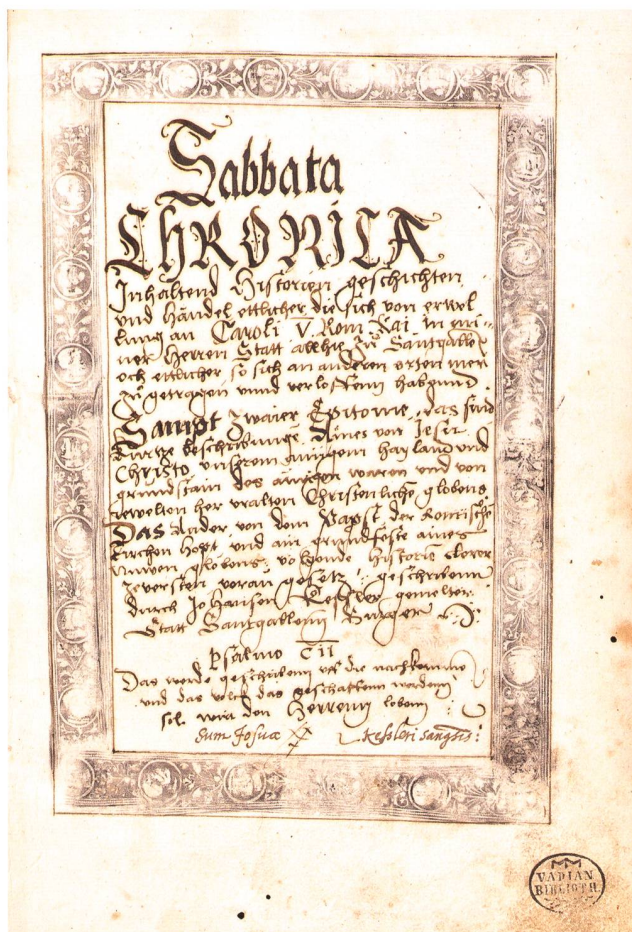 Sabbata
CHRONICA
Inhaltend Historien geschichten
und händel ettlicher, die sich von erwel
lung an Caroli V. Röm. Kai. in mi-
ner Herren Statt allhie zu Santgallen
och ettlicher so sich an anderen orten mer
zu getragen unnd verloffenn habend.
Sampt zwaier Epitome, das sind
kurtze beschribunge. Aines von Jesu
Christo unserem ainigem hayland und
grundstain des ainigen waren und von
ewelten her uralten Christenliche globens
Das Ander von dem Papst der Römische
kirchen hopt und ain grundfeste aines
nuwen globens, volgende historia
zeversten voran gesetz: geschribenn
durch Johansen Kessler gemelter
Statt Santgallenn Burger
Psalmo CII
Das werde geschribenn uff die nachkommen
und das volck das geschaffenn werdenn
sol wirt den Herrenn loben
Sum Josuæ Kesleri Sangtis:
VADIAN
BIBLIOTH.